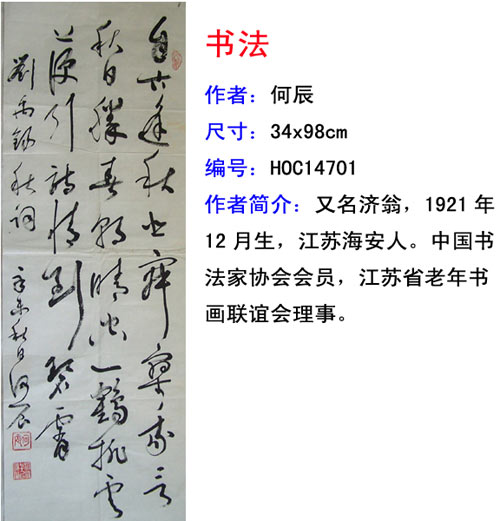 自古逢秋悲寂寥我言
秋日勝春朝晴空一鶴排云
上便引詩情到碧霄
劉禹錫秋詞
辛未秋日何辰
书法
作者：何辰
尺寸：34x98cm
编号：HOC14701
作者简介：又名济翁，1921 年
12 月生，江苏海安人。中国书
法家协会会员，江苏省老年书
画联谊会理事。